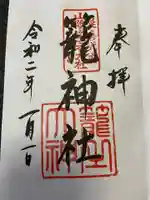 奉拝
籠神社
令和二年一月一日